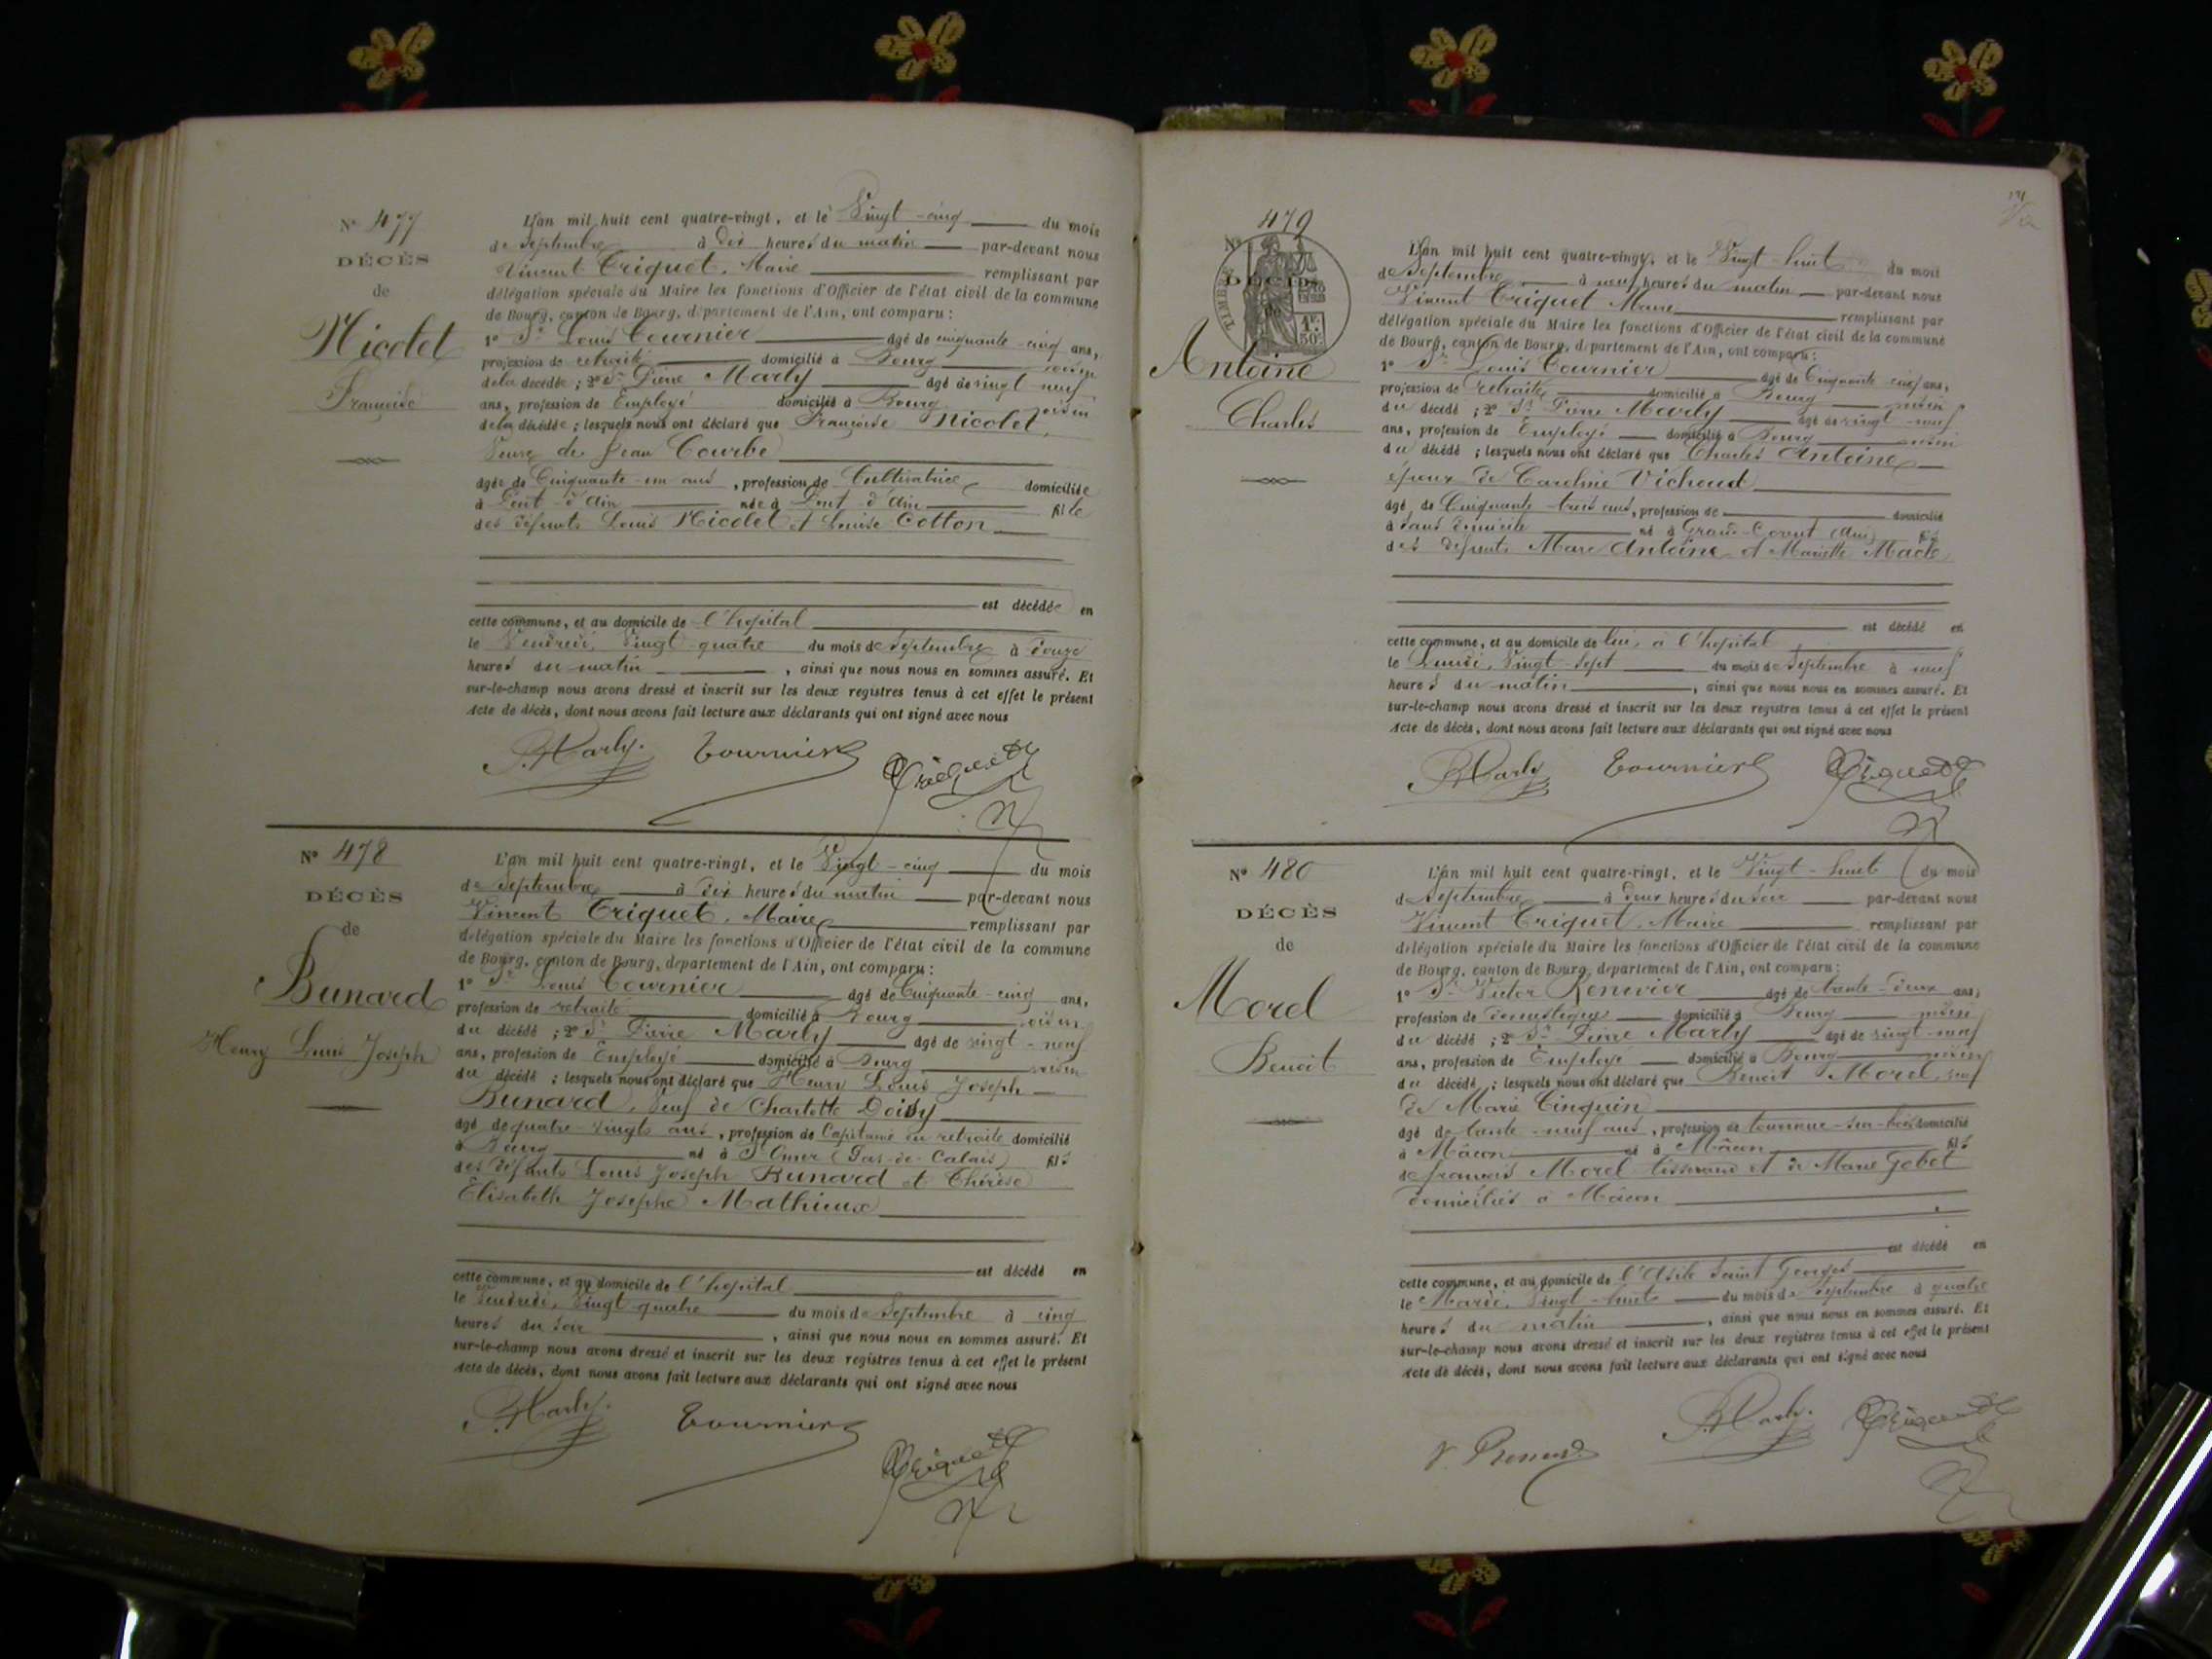 N° 477
DÉCÈS
de
Nicolet
Françoise
L'an mil huit cent quatre-vingt, et le Vingt-cinq du mois
de Septembre à dix heures du matin par-devant nous
Vincent Triquet, Maire remplissant par
délégation spéciale du Maire les fonctions d'Officier de l'état civil de la commune
de Bourg, canton de Bourg, département de l'Ain, ont comparu :
1° Sr Louis Tournier âgé de cinquante-cinq ans,
profession de retraité domicilié à Bourg voisin
de la décédée ; 2° Sr Pierre Marly âgé de vingt-neuf
ans, profession de Employé domicilié à Bourg voisin
de la décédée ; lesquels nous ont déclaré que Françoise Nicolet,
Veuve de Jean Courbe
âgée de Cinquante-un ans, profession de Cultivatrice domiciliée
à Pont-d'Ain née à Pont-d'Ain fille
des défunts Louis Nicolet et Louise Cotton
est décédée en
cette commune, et au domicile de l'hopital
le Vendredi, Vingt-quatre du mois de Septembre à douze
heures du matin, ainsi que nous nous en sommes assuré. Et
sur-le-champ nous avons dressé et inscrit sur les deux registres tenus à cet effet le présent
Acte de décès, dont nous avons fait lecture aux déclarants qui ont signé avec nous
P. Marly. Tournier Triquet
N° 478
DÉCÈS
de
Bunard
Henry Louis Joseph
L'an mil huit cent quatre-vingt, et le Vingt-cinq du mois
de Septembre à dix heures du matin par-devant nous
Vincent Triquet, Maire remplissant par
délégation spéciale du Maire les fonctions d'Officier de l'état civil de la commune
de Bourg, canton de Bourg, département de l'Ain, ont comparu :
1° Sr Louis Tournier âgé de Cinquante-cinq ans,
profession de retraité domicilié à Bourg voisin
du décédé ; 2° Sr Pierre Marly âgé de vingt-neuf
ans, profession de Employé domicilié à Bourg voisin
du décédé ; lesquels nous ont déclaré que Henry Louis Joseph
Bunard, Veuf de Charlotte Doisy
âgé de quatre-vingts ans, profession de Capitaine en retraite domicilié
à Bourg né à St Omer (Pas-de-Calais) fils
des défunts Louis Joseph Bunard et Thérèse
Elisabeth Josephe Mathieux
est décédé en
cette commune, et au domicile de l'hopital
le Vendredi, Vingt-quatre du mois de Septembre à cinq
heures du soir, ainsi que nous nous en sommes assuré. Et
sur-le-champ nous avons dressé et inscrit sur les deux registres tenus à cet effet le présent
Acte de décès, dont nous avons fait lecture aux déclarants qui ont signé avec nous
P. Marly. Tournier Triquet
N° 479
DÉCÈS
de
TIMBRE
1F.
50c.
Antoine
Charles
L'an mil huit cent quatre-vingt, et le Vingt-huit du mois
de Septembre à neuf heures du matin par-devant nous
Vincent Triquet Maire remplissant par
délégation spéciale du Maire les fonctions d'Officier de l'état civil de la commune
de Bourg, canton de Bourg, département de l'Ain, ont comparu :
1° Sr Louis Tournier âgé de Cinquante-cinq ans,
profession de retraité domicilié à Bourg voisin
du décédé ; 2° Sr Pierre Marly âgé de vingt-neuf
ans, profession de Employé domicilié à Bourg voisin
du décédé ; lesquels nous ont déclaré que Charles Antoine
époux de Caroline Vichoud
âgé de Cinquante-trois ans, profession de domicilié
à sans domicile né à Grand-Corent (Ain) fils
des défunts Marc Antoine et Mariette Macle
est décédé en
cette commune, et au domicile de lui, à l'hopital
le Lundi, Vingt-Sept du mois de Septembre à neuf
heures du matin, ainsi que nous nous en sommes assuré. Et
sur-le-champ nous avons dressé et inscrit sur les deux registres tenus à cet effet le présent
Acte de décès, dont nous avons fait lecture aux déclarants qui ont signé avec nous
P. Marly Tournier Triquet
N° 480
DÉCÈS
de
Morel
Benoit
L'an mil huit cent quatre-vingt, et le Vingt-huit du mois
de Septembre à deux heures du soir par-devant nous
Vincent Triquet, Maire remplissant par
délégation spéciale du Maire les fonctions d'Officier de l'état civil de la commune
de Bourg, canton de Bourg, département de l'Ain, ont comparu :
1° Sr Victor Renevier âgé de trente-deux ans,
profession de domestique domicilié à Bourg voisin
du décédé ; 2° Sr Pierre Marly âgé de vingt-neuf
ans, profession de Employé domicilié à Bourg voisin
du décédé ; lesquels nous ont déclaré que Benoit Morel, veuf
de Marie Cinquin
âgé de trente-neuf ans, profession de tourneur-sur-bois domicilié
à Mâcon né à Mâcon fils
de françois Morel tisserand et de Marie Gobet
domiciliés à Mâcon
est décédé en
cette commune, et au domicile de l'Asile Saint Georges
le Mardi, Vingt-huit du mois de Septembre à quatre
heures du matin, ainsi que nous nous en sommes assuré. Et
sur-le-champ nous avons dressé et inscrit sur les deux registres tenus à cet effet le présent
Acte de décès, dont nous avons fait lecture aux déclarants qui ont signé avec nous
P. Marly. Triquet